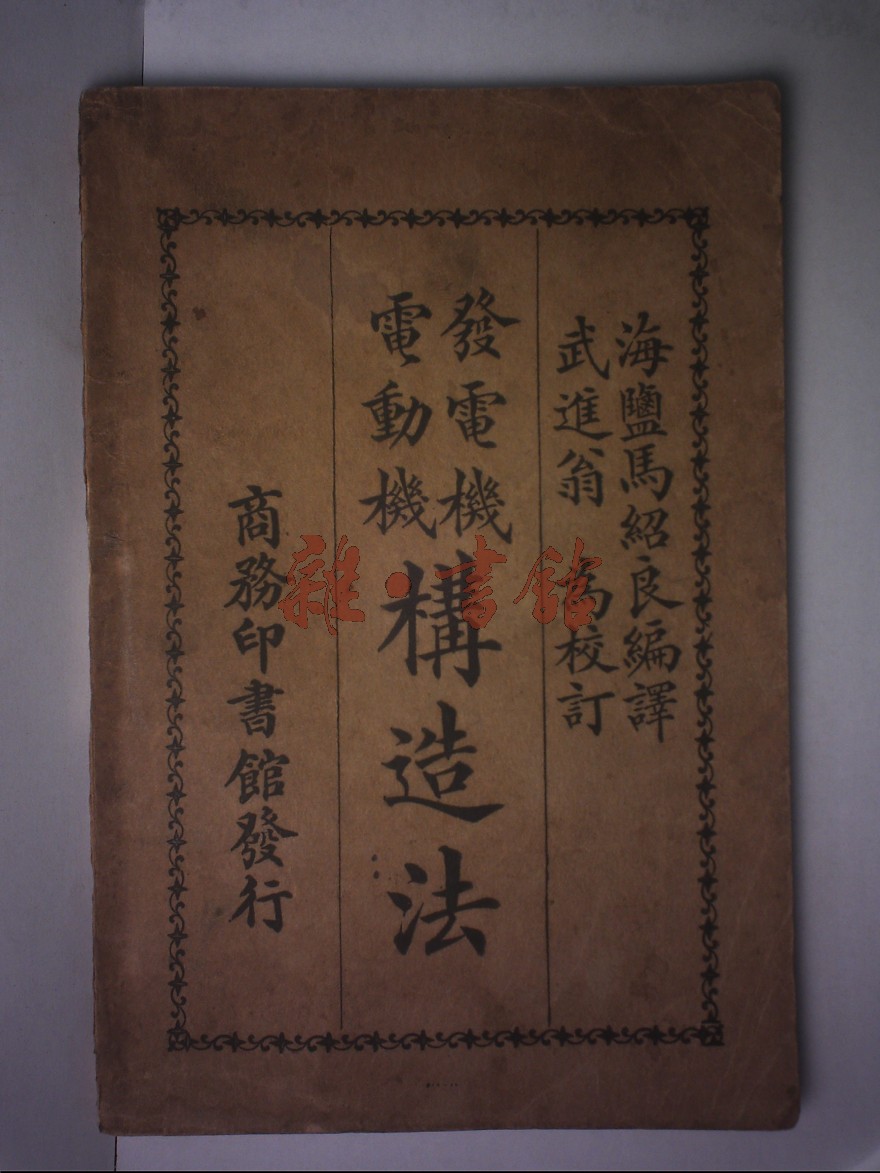 海鹽馬紹良編譯
武進翁 為校訂
發電機
電動機
構造法
商務印書館發行
雜·書館